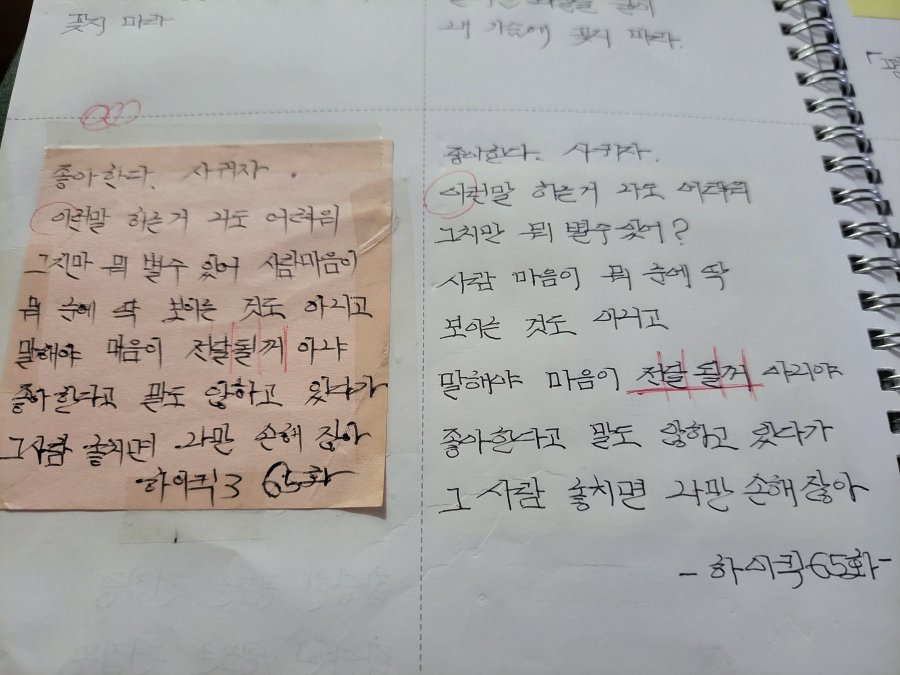 꽂지 마라
내 가슴에 꽂지 마라.
좋아한다. 사귀자.
이런말 하는거 나도 어려워
그지만 뭐 별수 있어 사람마음이
뭐 눈에 딱 보이는 것도 아니고
말해야 마음이 전달될꺼 아냐
좋아한다고 말도 않하고 있다가
그사람 놓치면 나만 손해 잖아
하이킥3 65화
좋아한다. 사귀자.
이런말 하는거 나도 어려워
그지만 뭐 별수 있어?
사람 마음이 뭐 눈에 딱
보이는 것도 아니고
말해야 마음이 전달 될꺼 아니야
좋아한다고 말도 않하고 있다가
그 사람 놓치면 나만 손해 잖아
- 하이킥 65화-